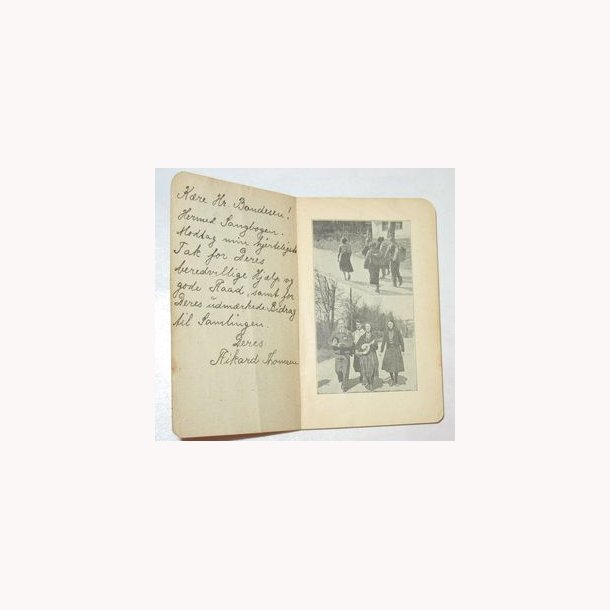 Kære Hr. Bondesen!
Hermed Sangbogen.
Modtag min hjerteligste
Tak for Deres
beredvillige Hjælp og
gode Raad, samt for
Deres udmærkede Bidrag
til Samlingen.
Deres
Rikard